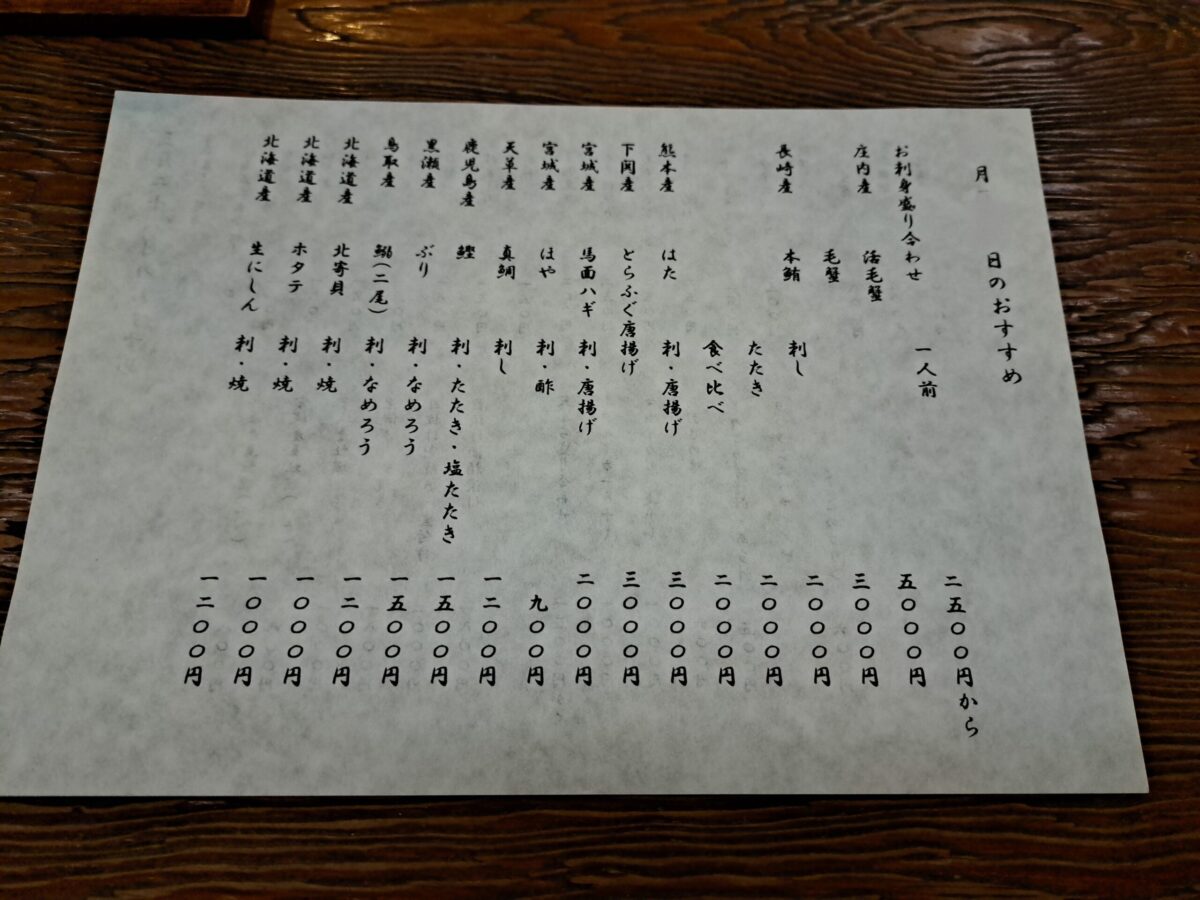 月　日のおすすめ
お刺身盛り合わせ　一人前　二五〇〇円から
庄内産　活毛蟹　五〇〇〇円
毛蟹　三〇〇〇円
長崎産　本鮪　刺し　二〇〇〇円
たたき　二〇〇〇円
食べ比べ　二〇〇〇円
熊本産　はた　刺・唐揚げ　三〇〇〇円
下関産　とらふぐ唐揚げ　三〇〇〇円
宮城産　馬面ハギ　刺・唐揚げ　二〇〇〇円
宮城産　ほや　刺・酢　九〇〇円
天草産　真鯛　刺し　一二〇〇円
鹿児島産　鰹　刺・たたき・塩たたき　一五〇〇円
黒瀬産　ぶり　刺・なめろう　一五〇〇円
鳥取産　鰯(二尾)　刺・なめろう　一二〇〇円
北海道産　北寄貝　刺・焼　一〇〇〇円
北海道産　ホタテ　刺・焼　一〇〇〇円
北海道産　生にしん　刺・焼　一二〇〇円